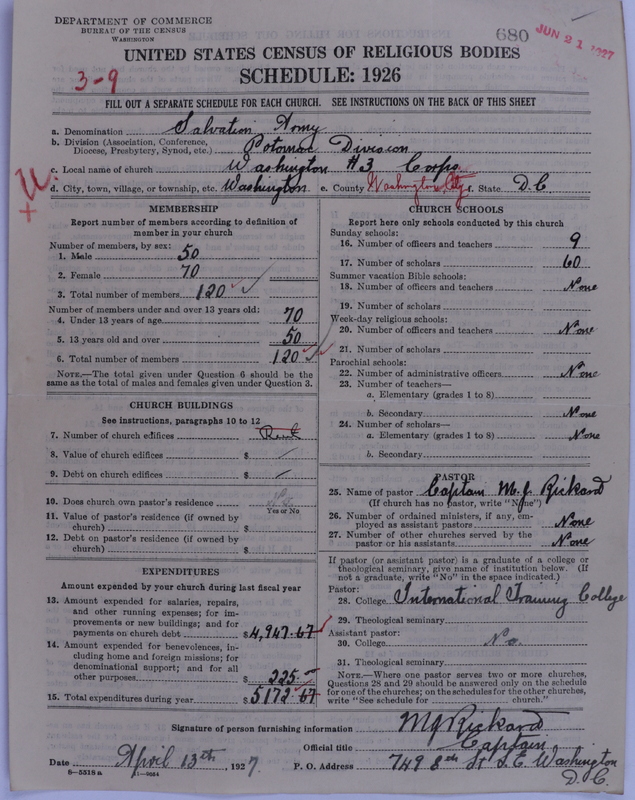 DEPARTMENT OF COMMERCE
BUREAU OF THE CENSUS
WASHINGTON
680
JUN 21 1927
UNITED STATES CENSUS OF RELIGIOUS BODIES
SCHEDULE: 1926
3-9
FILL OUT A SEPARATE SCHEDULE FOR EACH CHURCH. SEE INSTRUCTIONS ON THE BACK OF THIS SHEET
a. Denomination Salvation Army
b. Division (Association, Conference, Diocese, Presbytery, Synod, etc.) Potomac Division
c. Local name of church Washington #3 Corps
d. City, town, village, or township, etc. Washington e. County Washington City f. State D.C
MEMBERSHIP
Report number of members according to definition of
member in your church
Number of members, by sex:
1. Male 50
2. Female 70
3. Total number of members 120
Number of members under and over 13 years old:
4. Under 13 years of age 70
5. 13 years old and over 50
6. Total number of members 120
NOTE.—The total given under Question 6 should be
same as the total of males and females given under Question 3.
CHURCH BUILDINGS
See instructions, paragraphs 10 to 12
7. Number of church edifices Rent
8. Value of church edifices $
9. Debt on church edifices $
10. Does church own pastor's residence
Yes or No
11. Value of pastor's residence (if owned by
church) $
12. Debt on pastor's residence (if owned by
church) $
EXPENDITURES
Amount expended by your church during last fiscal year
13. Amount expended for salaries, repairs,
and other running expenses; for im-
provements or new buildings; and for
payments on church debt $4,947.67
14. Amount expended for benevolences, in-
cluding home and foreign missions; for
denominational support; and for all
other purposes $ 225.—
15. Total expenditures during year $5172.67
CHURCH SCHOOLS
Report here only schools conducted by this church
Sunday schools:
16. Number of officers and teachers 9
17. Number of scholars 60
Summer vacation Bible schools:
18. Number of officers and teachers None
19. Number of scholars
Week-day religious schools:
20. Number of officers and teachers None
21. Number of scholars
Parochial schools:
22. Number of administrative officers None
23. Number of teachers—
a. Elementary (grades 1 to 8)
b. Secondary None
24. Number of scholars—
a. Elementary (grades 1 to 8) None
b. Secondary
PASTOR
25. Name of pastor Captain M. J. Rickard
(If church has no pastor, write "None")
26. Number of ordained ministers, if any, em-
ployed as assistant pastors None
27. Number of other churches served by the
pastor or his assistants None
If pastor (or assistant pastor) is a graduate of a college or
theological seminary, give name of institution below. (If
not a graduate, write "No" in the space indicated.)
Pastor:
28. College International Training College
29. Theological seminary
Assistant pastor:
30. College No
31. Theological seminary
NOTE.—Where one pastor serves two or more churches,
Questions 28 and 29 should be answered only on the schedule
for one of the churches; on the schedules for the other churches,
write "See schedule for church."
Signature of person furnishing information MJ Rickard
Official title Captain
Date April 13th, 1927 P. O. Address 749 8th St S.E. Washington
D.C.
8-5518a 11-9064